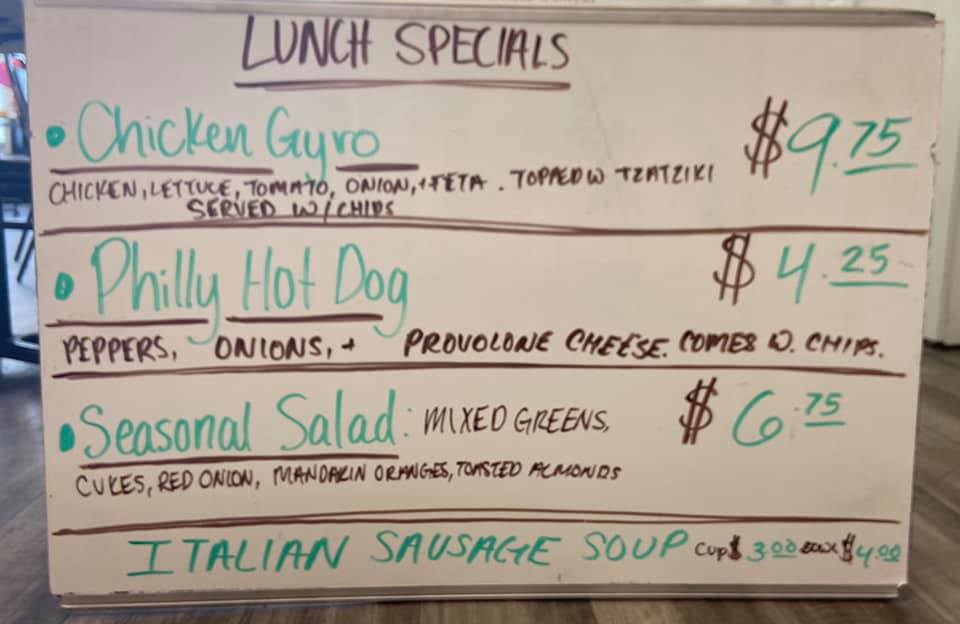 LUNCH SPECIALS
• Chicken Gyro $9.75
CHICKEN, LETTUCE, TOMATO, ONION, + FETA. TOPPED W TZATZIKI
SERVED W/CHIPS
• Philly Hot Dog $4.25
PEPPERS, ONIONS, + PROVOLONE CHEESE. COMES W. CHIPS.
• Seasonal Salad: MIXED GREENS, $6.75
CUKES, RED ONION, MANDARIN ORANGES, TOASTED ALMONDS
ITALIAN SAUSAGE SOUP Cup $3.00 $4.00